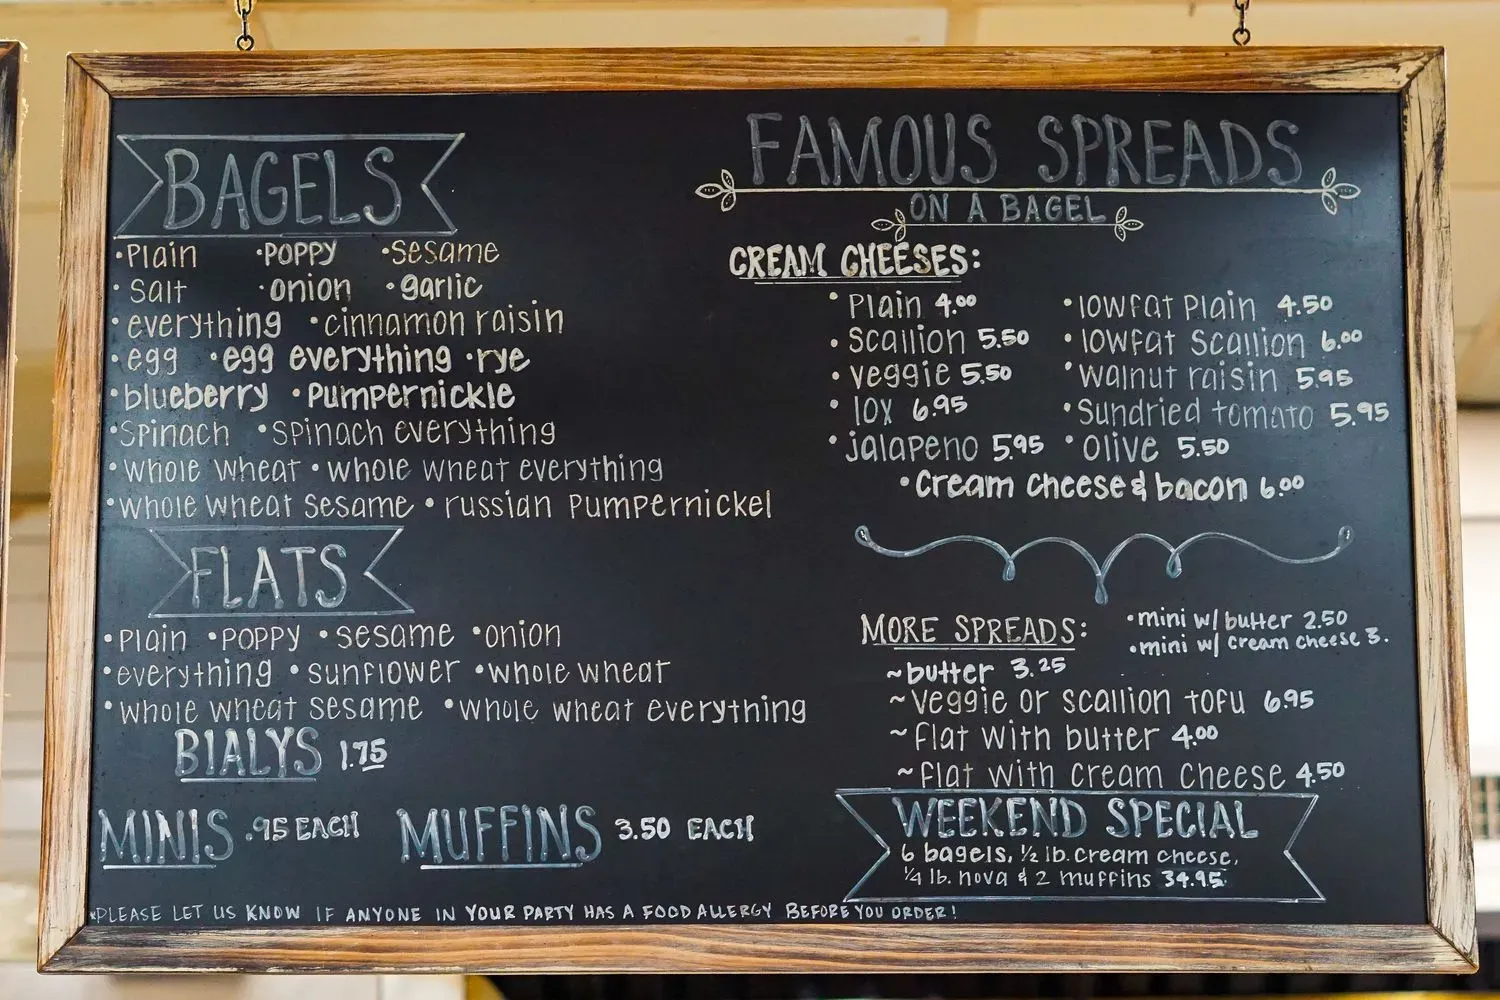 BAGELS
•Plain •POPPY •Sesame
•Salt •onion •garlic
•everything •cinnamon raisin
•egg •egg everything •rye
•blueberry •Pumpernickle
•Spinach •Spinach everything
•whole wheat •whole wheat everything
•whole wheat Sesame •russian Pumpernickel
FLATS
•Plain •POPPY •Sesame •onion
•everything •sunflower •whole wheat
•whole wheat Sesame •whole wheat everything
BIALYS 1.75
MINIS .95 EACH
MUFFINS 3.50 EACH
*PLEASE LET US KNOW IF ANYONE IN YOUR PARTY HAS A FOOD ALLERGY BEFORE YOU ORDER!
FAMOUS SPREADS
ON A BAGEL
CREAM CHEESES:
•Plain 4.00 •lowfat Plain 4.50
•Scallion 5.50 •lowfat Scallion 6.00
•veggie 5.50 •walnut raisin 5.95
•lox 6.95 •Sundried tomato 5.95
•jalapeno 5.95 •olive 5.50
•Cream cheese & bacon 6.00
MORE SPREADS:
•mini w/ butter 2.50
•mini w/ cream cheese 3.
~butter 3.25
~veggie or scallion tofu 6.95
~flat with butter 4.00
~flat with cream cheese 4.50
WEEKEND SPECIAL
6 bagels, ½ lb. cream cheese,
¼ lb. nova & 2 muffins 34.95